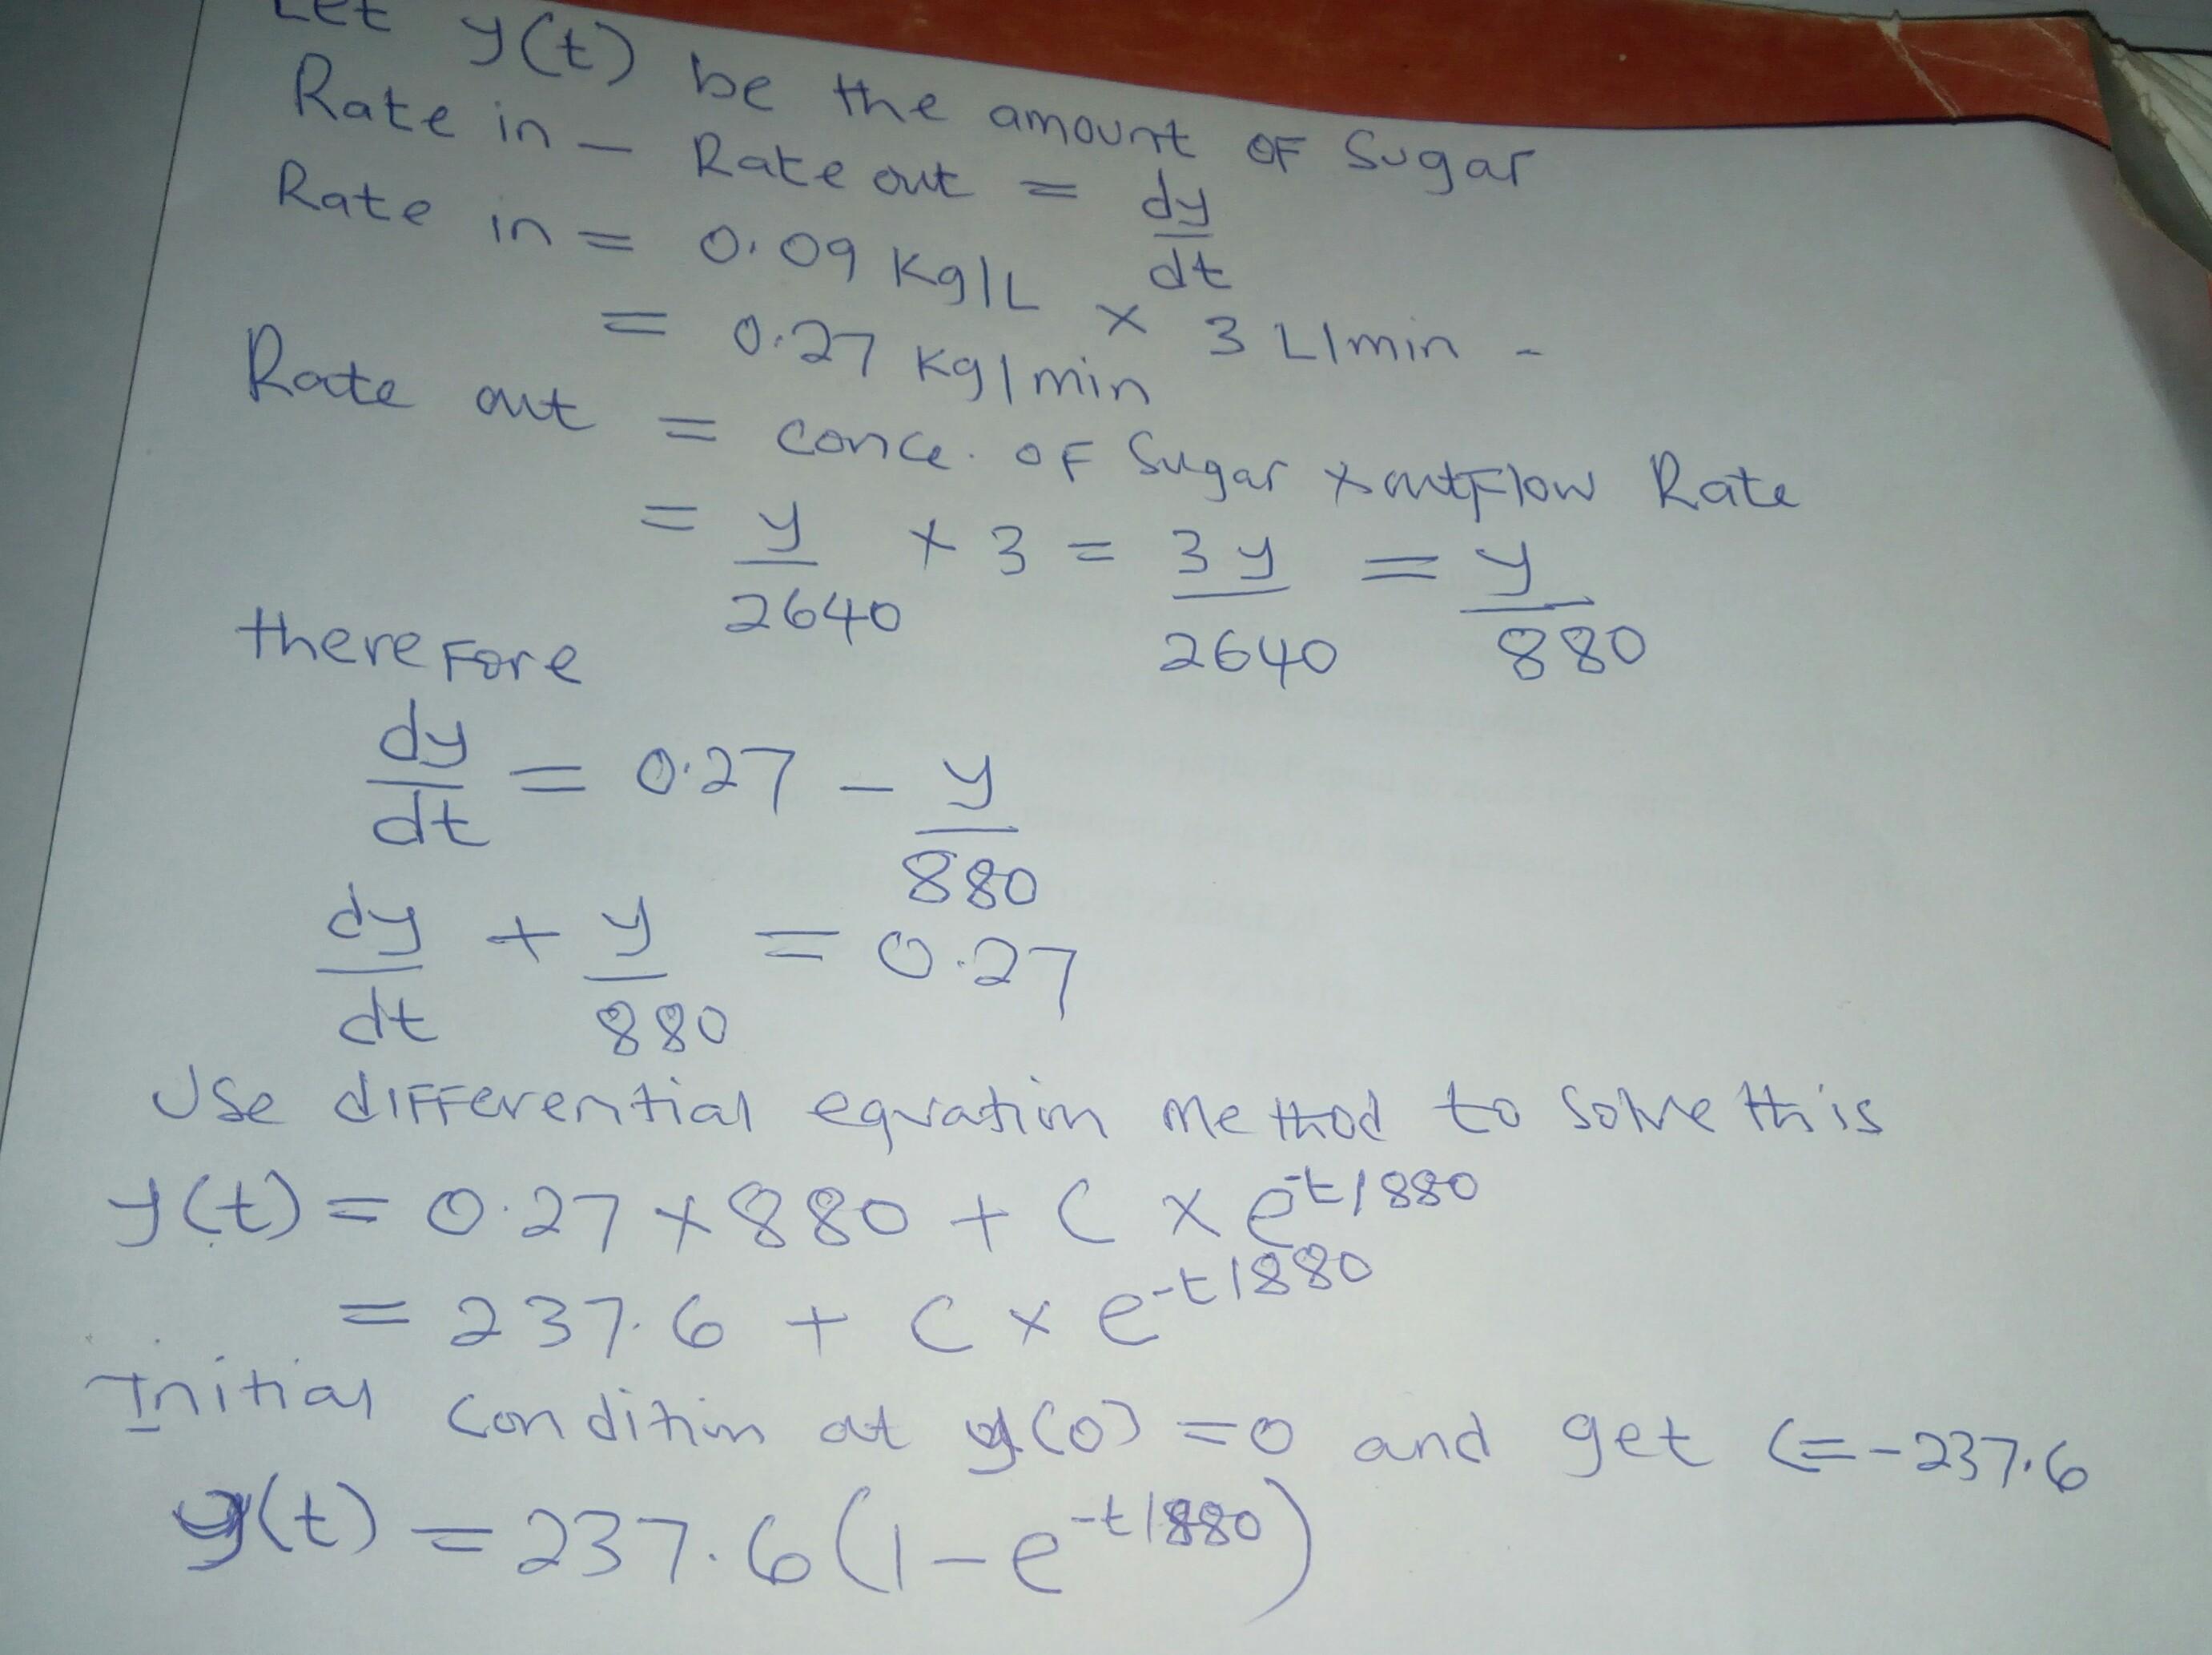 Let y(t) be the amount of Sugar
Rate in - Rate out = dy/dt
Rate in = 0.09 Kg/L × 3 L/min -
= 0.27 Kg/min
Rate out = conce. of Sugar × outflow Rate
= y/2640 × 3 = 3y/2640 = y/880
therefore
dy/dt = 0.27 - y/880
dy/dt + y/880 = 0.27
Use differential equation method to solve this
y(t) = 0.27 × 880 + C × e^-t/880
= 237.6 + C × e^-t/880
Initial condition at y(0) = 0 and get C = -237.6
y(t) = 237.6 (1 - e^-t/880)